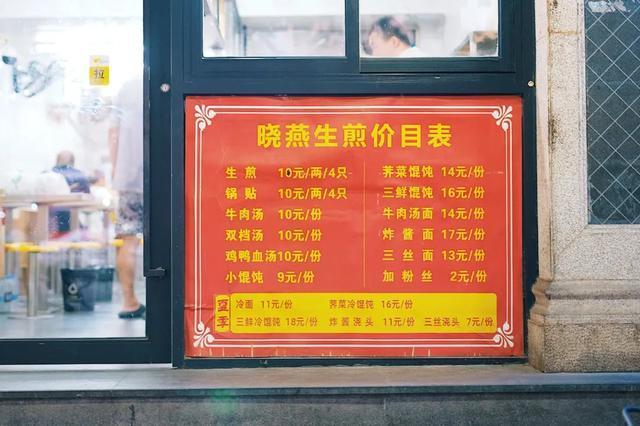 拉
晓燕生煎价目表
生煎 10元/两/4只
锅贴 10元/两/4只
牛肉汤 10元/份
双档汤 10元/份
鸡鸭血汤10元/份
小馄饨 9元/份
荠菜馄饨 14元/份
三鲜馄饨 16元/份
牛肉汤面 14元/份
炸酱面 17元/份
三丝面 13元/份
加粉丝 2元/份
夏季
冷面 11元/份 荠菜冷馄饨 16元/份
三鲜冷馄饨 18元/份 炸酱浇头 11元/份 三丝浇头 7元/份